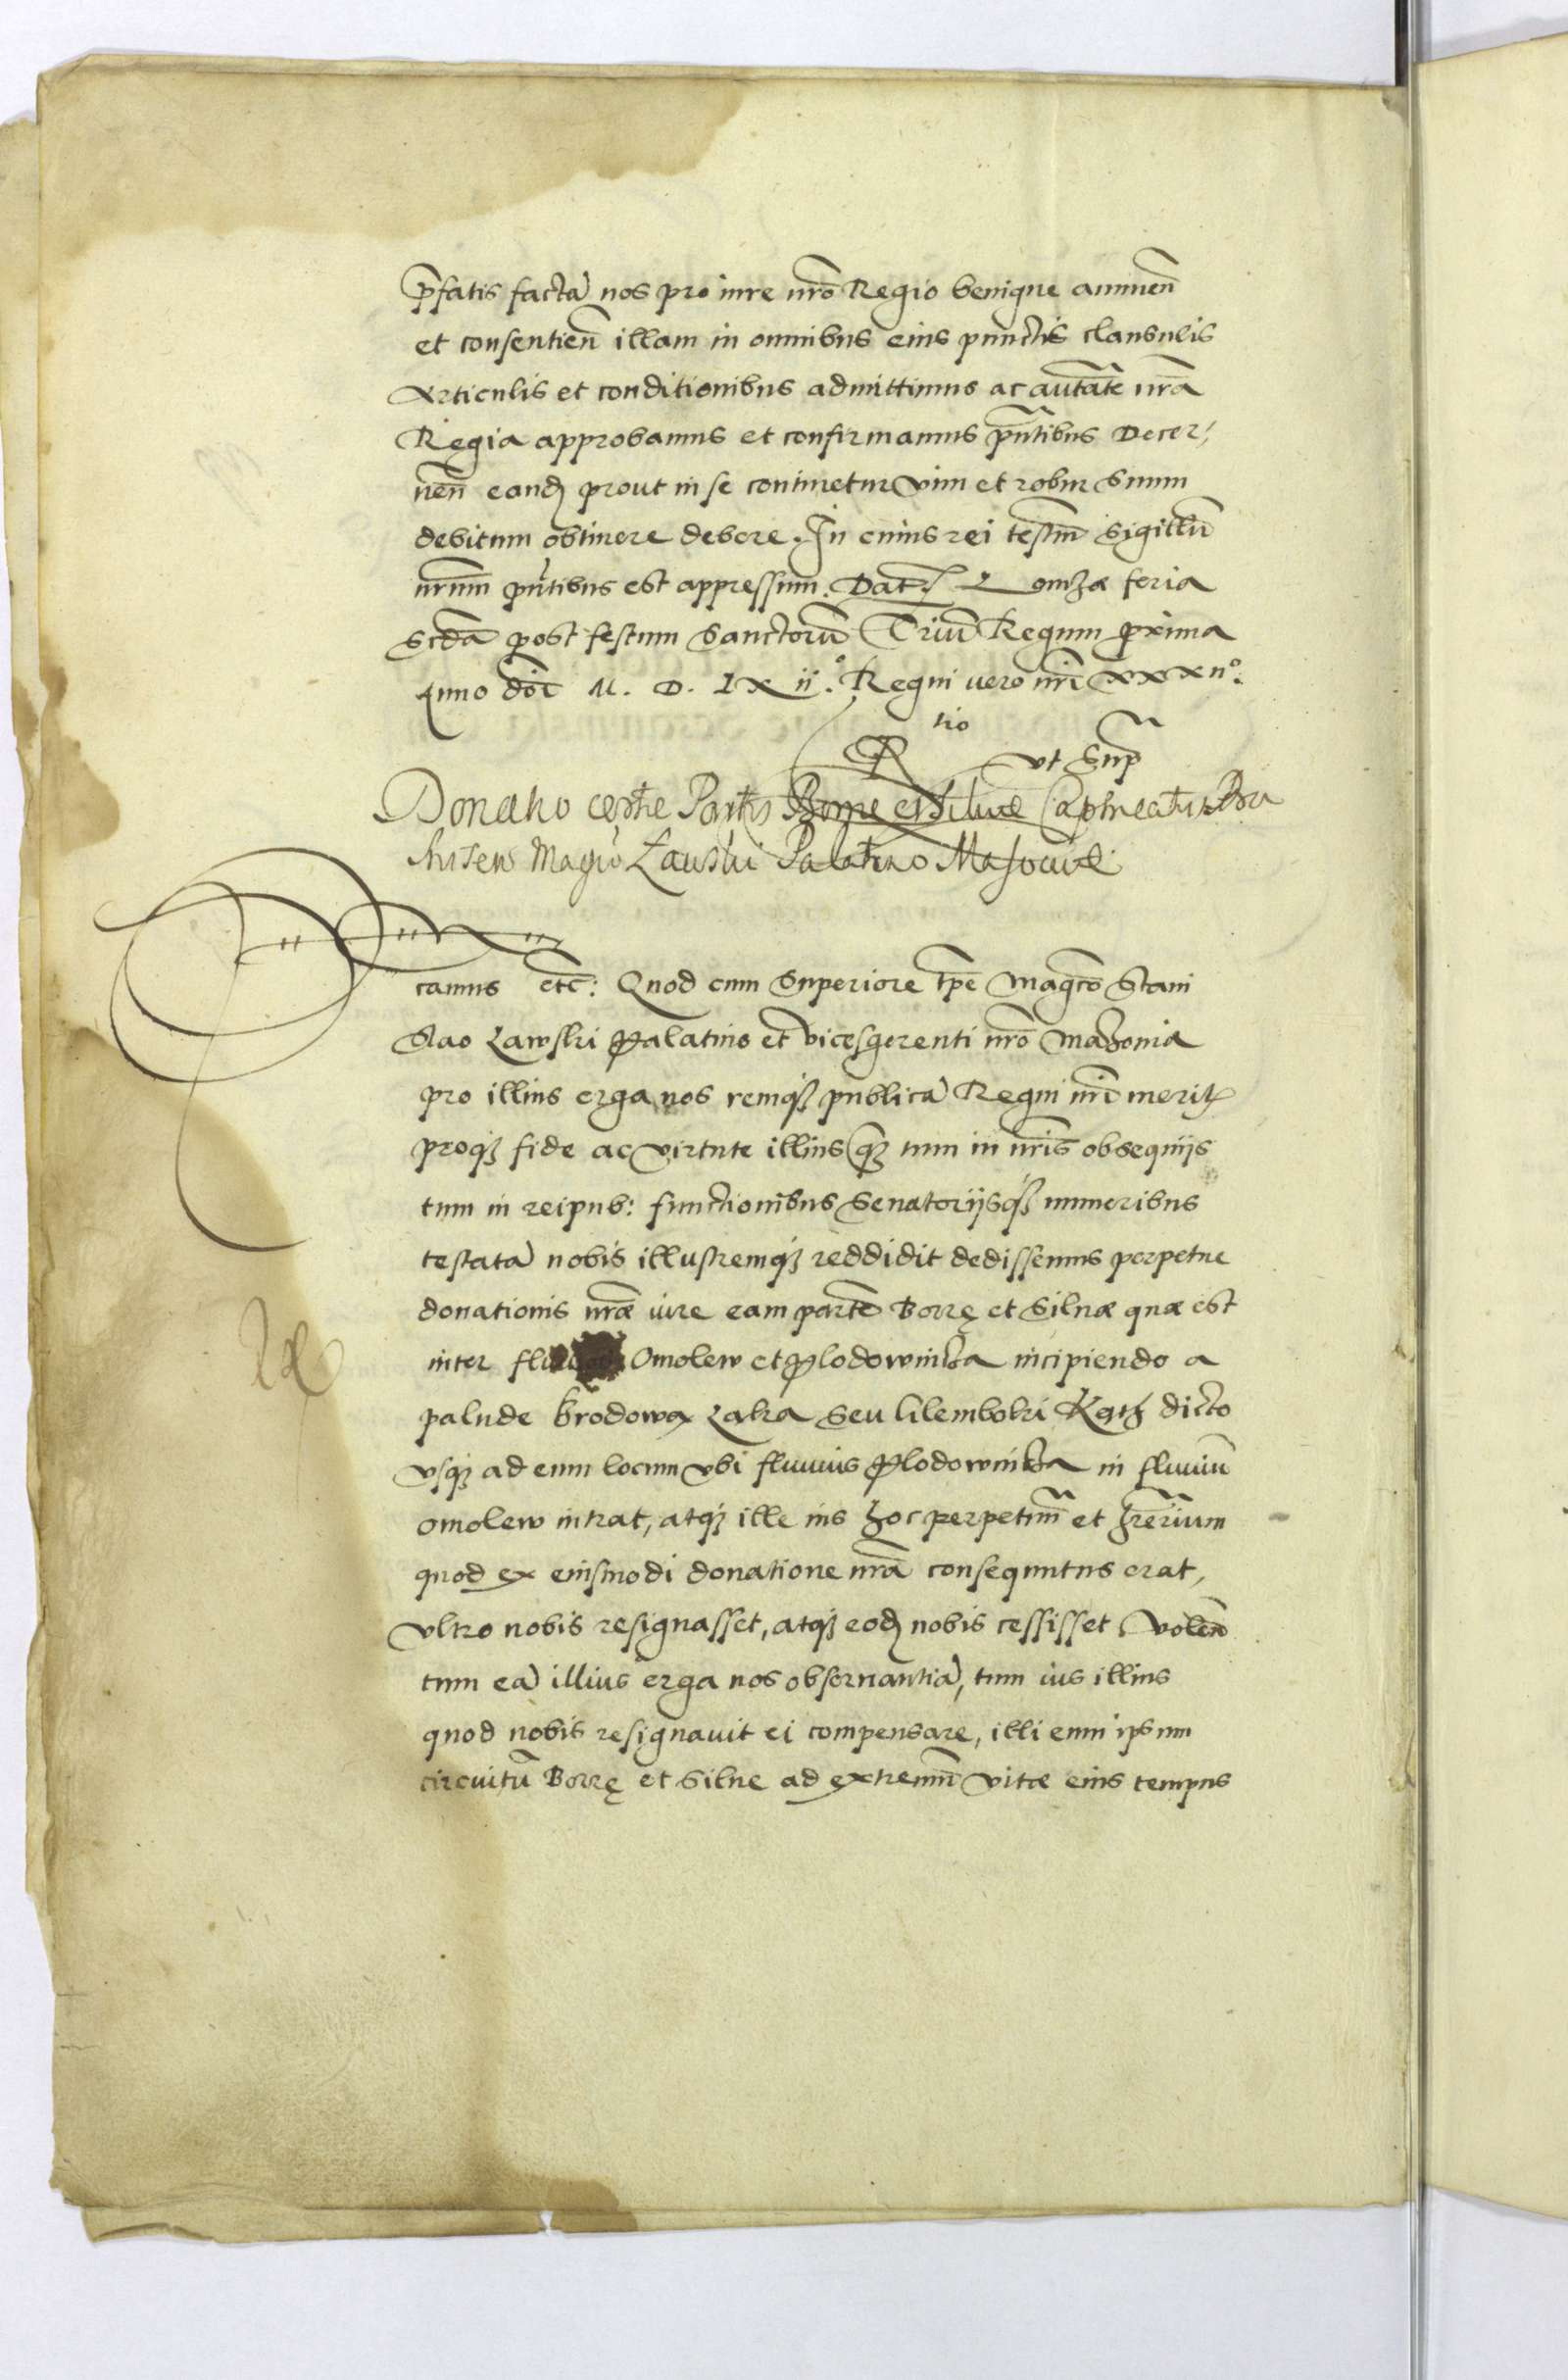 p̄fatis factā nos pro iure nr̄o Regio benigne annuen̄
et consentien̄ illam in omnibus eius punctis clausulis
Articulis et conditionibus admittimus ac autātē nr̄a
Regia approbamus et confirmamus pn̄tibus Decer,
nen̄ eandȝ prout in se continetur vim et robur suum
debitum obtinere debere. In cuius rei testm̄ Sigillū
nrūm pn̄tibus est appressum. Dat: Lomzæ feria
Scdā post festum Sanctorū Triū Regum proxima
Anno dn̄i M. D. LX ii.° Regni vero nr̄i xxxii°.
tio
R ut Supr̄
Donatio certæ Partis Borræ et Silnæ
Magco Zawski Palatino Masoviæ
camus etc: Quod cum Superiore tp̄e Maḡco Stani
slao Lawski Palatino et vicesgerenti nr̄o Mazoviæ
pro illius erga nos remqȝ publicā Regni nr̄i meritis
proqȝ fide ac virtute illius qȝ tum in nr̄is obsequiis
tum in reipub: functionibus Senatoriisqȝ muneribus
testatā nobis illustremqȝ reddidit dedissemus perpetue
donationis nr̄æ iure eam partē Borrę et Silnæ quæ est
inter Omolew et Plodownicza incipiendo a
palude Brodowa Laka seu Glemboki Kąth dicto
vsqȝ ad eum locum vbi fluuius Plodownicza in fluuiū
omolew intrat, atqȝ ille ius hoc perpetuū et hr̄ēr̄ium
quod ex eiusmodi donatione nr̄a consequutus erat,
vltro nobis resignasset, atqȝ eodȝ nobis cessisset, Volen̄
tum eā illius erga nos obseruantiā, tum ius illius
quod nobis resignauit ei compensare, illi eum ipsum
circuitū Borrę et Silne ad extremū vitæ eius tempus